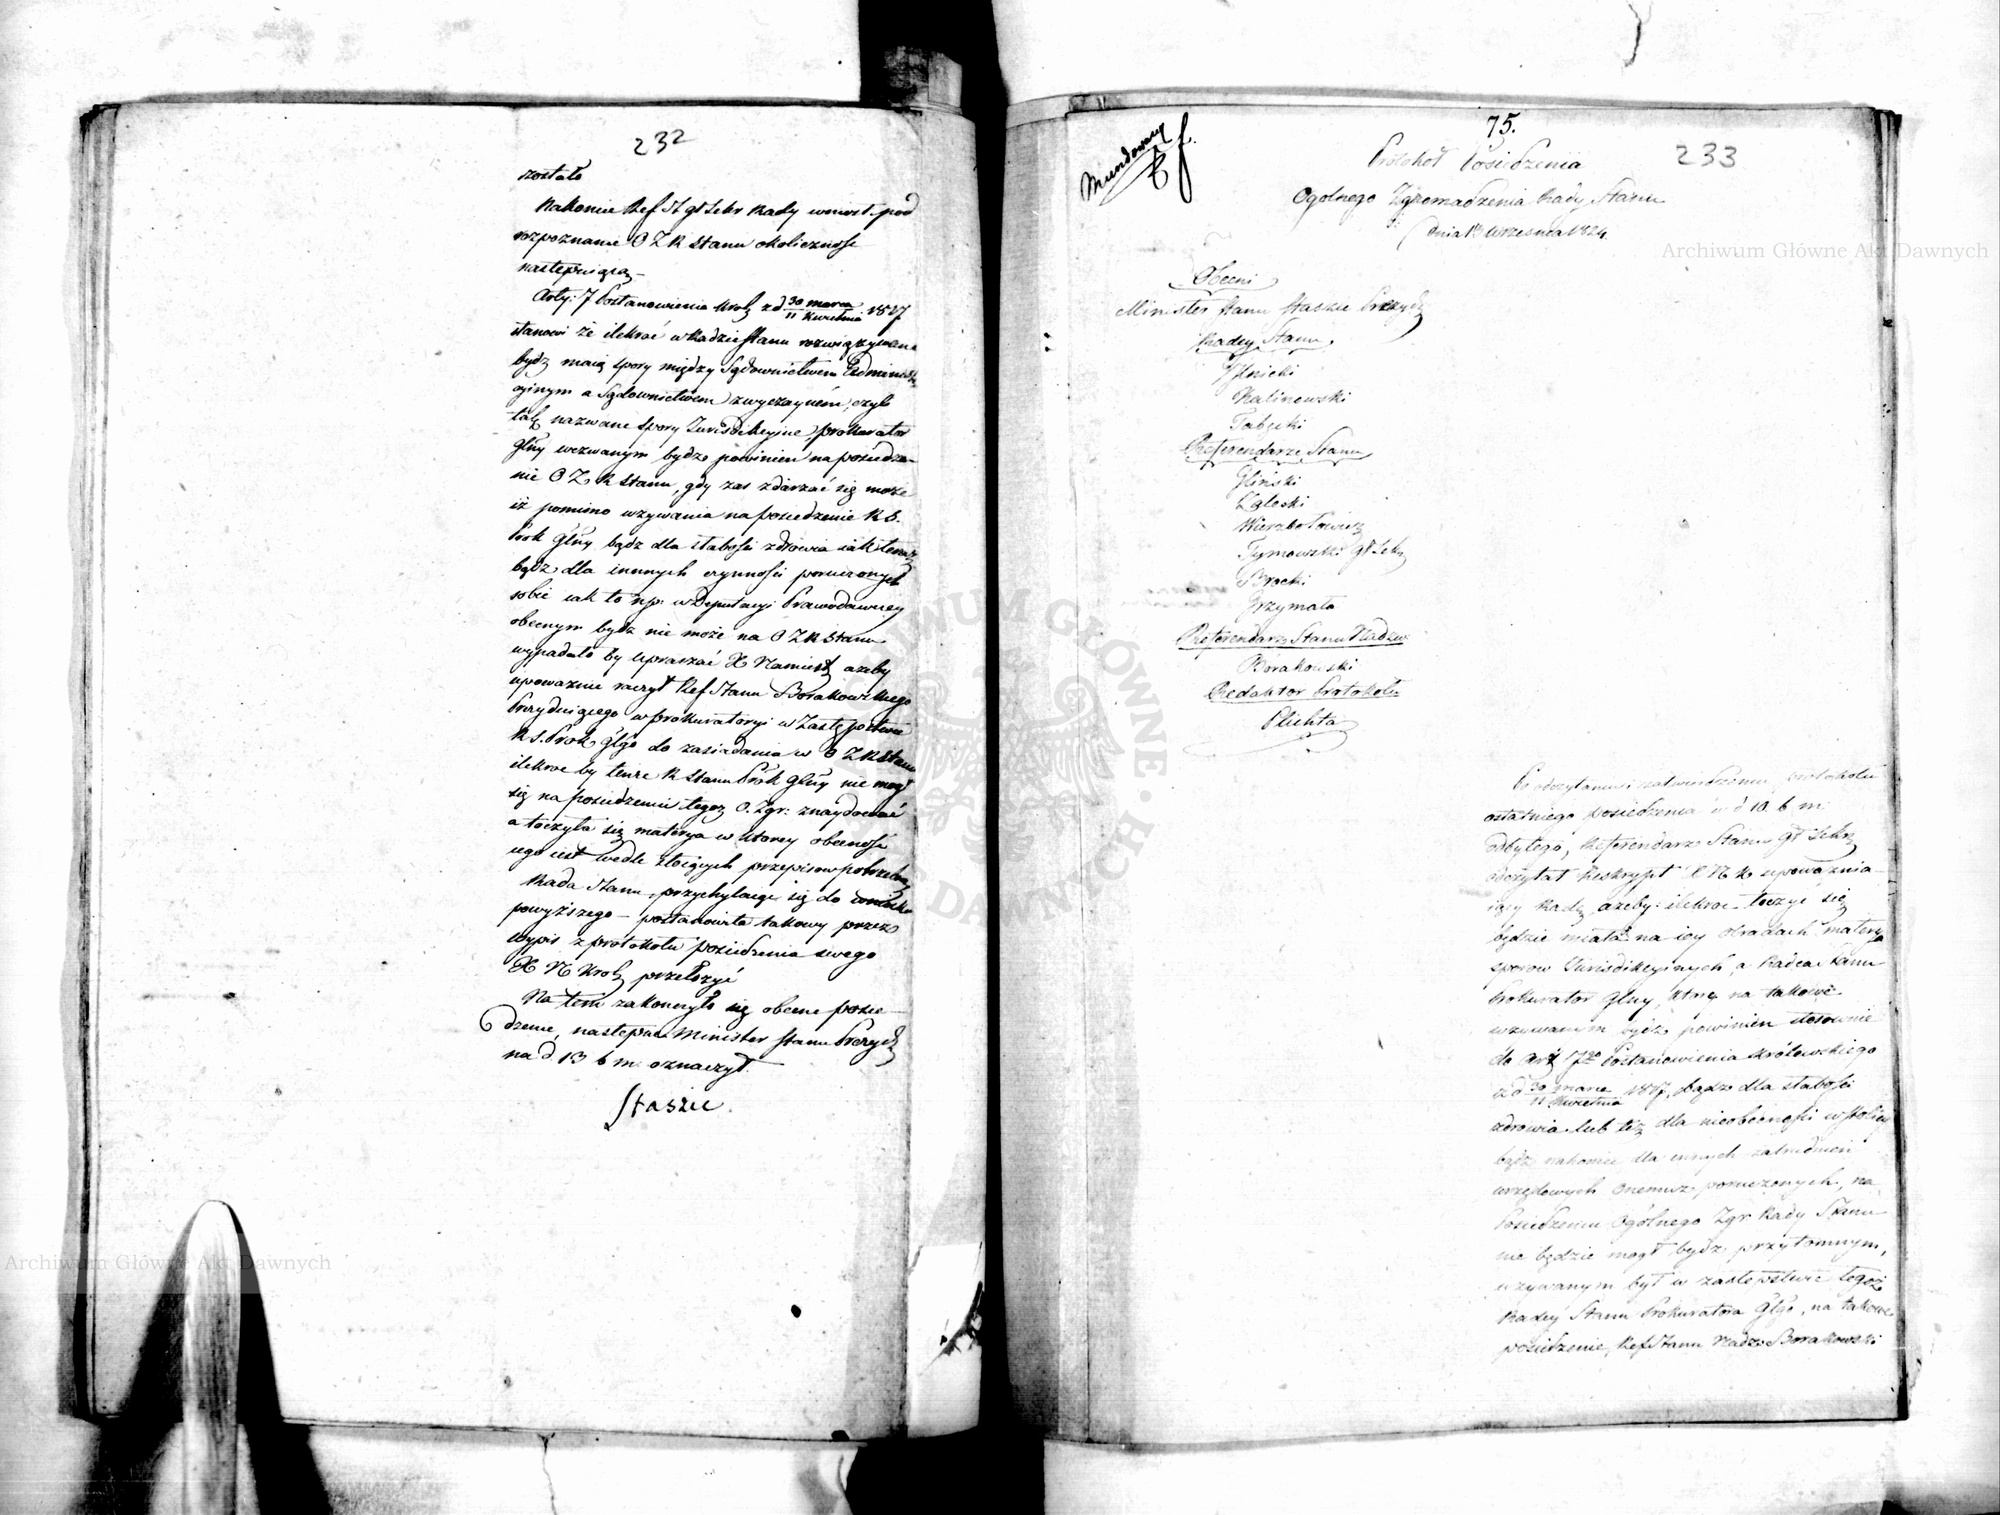 232
zostało
Nakoniec Ref St gł Sekr Rady wniósł pod
rozpoznanie O Z R Stanu okoliczność
następuiącą
Arty: 7 Postanowienia Król z d 30 marca / 11 Kwietnia 1817
stanowi że ilekroć w Radzie Stanu rozwiązywane
bydź maią spory między Sądownictwem Administra
cyinym a Sądownictwem zwyczaynem, czyli
tak nazwane spory Jurisdikcyine, prokurator
Głny wezwanym bydź powinien na posiedze-
nie O Z R Stanu, gdy zas zdarzać się może
iż pomimo wzywania na posiedzenie R S.
Prok Głny bądz dla słabości zdrowia iak teraz
bądz dla innych czynności poruczonych
sobie iak to np: w Deputacyi Prawodawczey
obecnym bydz nie może na O Z R Stanu
wypadało by upraszać X Namiest ażeby
upoważnić raczył Ref Stanu Borakowskiego
Prezyduiącego w prokuratoryi w Zastępstwie
R S. Prok Głgo do zasiadania w O Z R Stanu
ilekroc by tenże R Stanu Prok Głny nie mogł
się na posiedzeniu tegoż O. Zgr: znaydować
a toczyła się materya w ktorey obecność
iego iest wedle istnących przepisow potrzebną
Rada Stanu, przychylaiąc się do wniosku
powyższego - postanowiła takowy przez
wypis z protokołu posiedzenia swego
X N Krol przełożyć
Na tem zakończyło się obecne posie-
dzenie, następne Minister Stanu Prezyd
na d 13 b m. oznaczył.
Staszic.
Mundowany
75.
233
Protokoł Posiedzenia
Ogolnego Zgromadzenia Rady Stanu
dnia 13 Września 1824
Archiwum Główne Akt Dawnych
Obecni
Minister Stanu Staszic Prezyd
Radcy Stanu
Kalinowski
Referendarze Stanu
Gliński
Wierzbołowicz
Tymowski Gł Sekr
Brocki
Grzymała
Referendarz Stanu Nadzw.
Borakowski
Redaktor Protokołu
Plichta
Po odczytaniu i zatwierdzeniu protokołu
ostatniego posiedzenia w d 10. b m.
odbytego, Referendarz Stanu Gł Sekr
odczytał Reskrypt X N K upoważnia-
iący Radę, ażeby ilekroc toczyć się
będzie miała na iey obradach materya
sporow Jurisdikcyinych, a Radca Stanu
Prokurator Głny, który na takowe
wzywanym bydź powinien stosownie
do art 7go Postanowienia Królewskiego
z d 30 marca / 11 Kwietnia 1817, bądz dla słabości
zdrowia lub też dla nieobecności w stolicy
bądz nakoniec dla innych zatrudnień
urzędowych onemuż poruczonych, na
Posiedzeniu Ogólnego Zgr Rady Stanu
nie będzie mogł bydz przytomnym,
wzywanym był w zastępstwie tegoż
Radcy Stanu Prokuratora Głgo, na takowe
posiedzenie, Ref Stanu Nadzw Borakowski
Archiwum Główne Akt Dawnych
ARCHIWUM GŁÓWNE AKT DAWNYCH